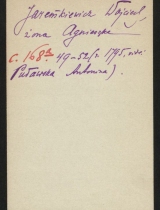 Jareńkiewicz Wojciech
żona Agnieszka
C. 168a 49-52/2 1745.
Puławska Antonina).